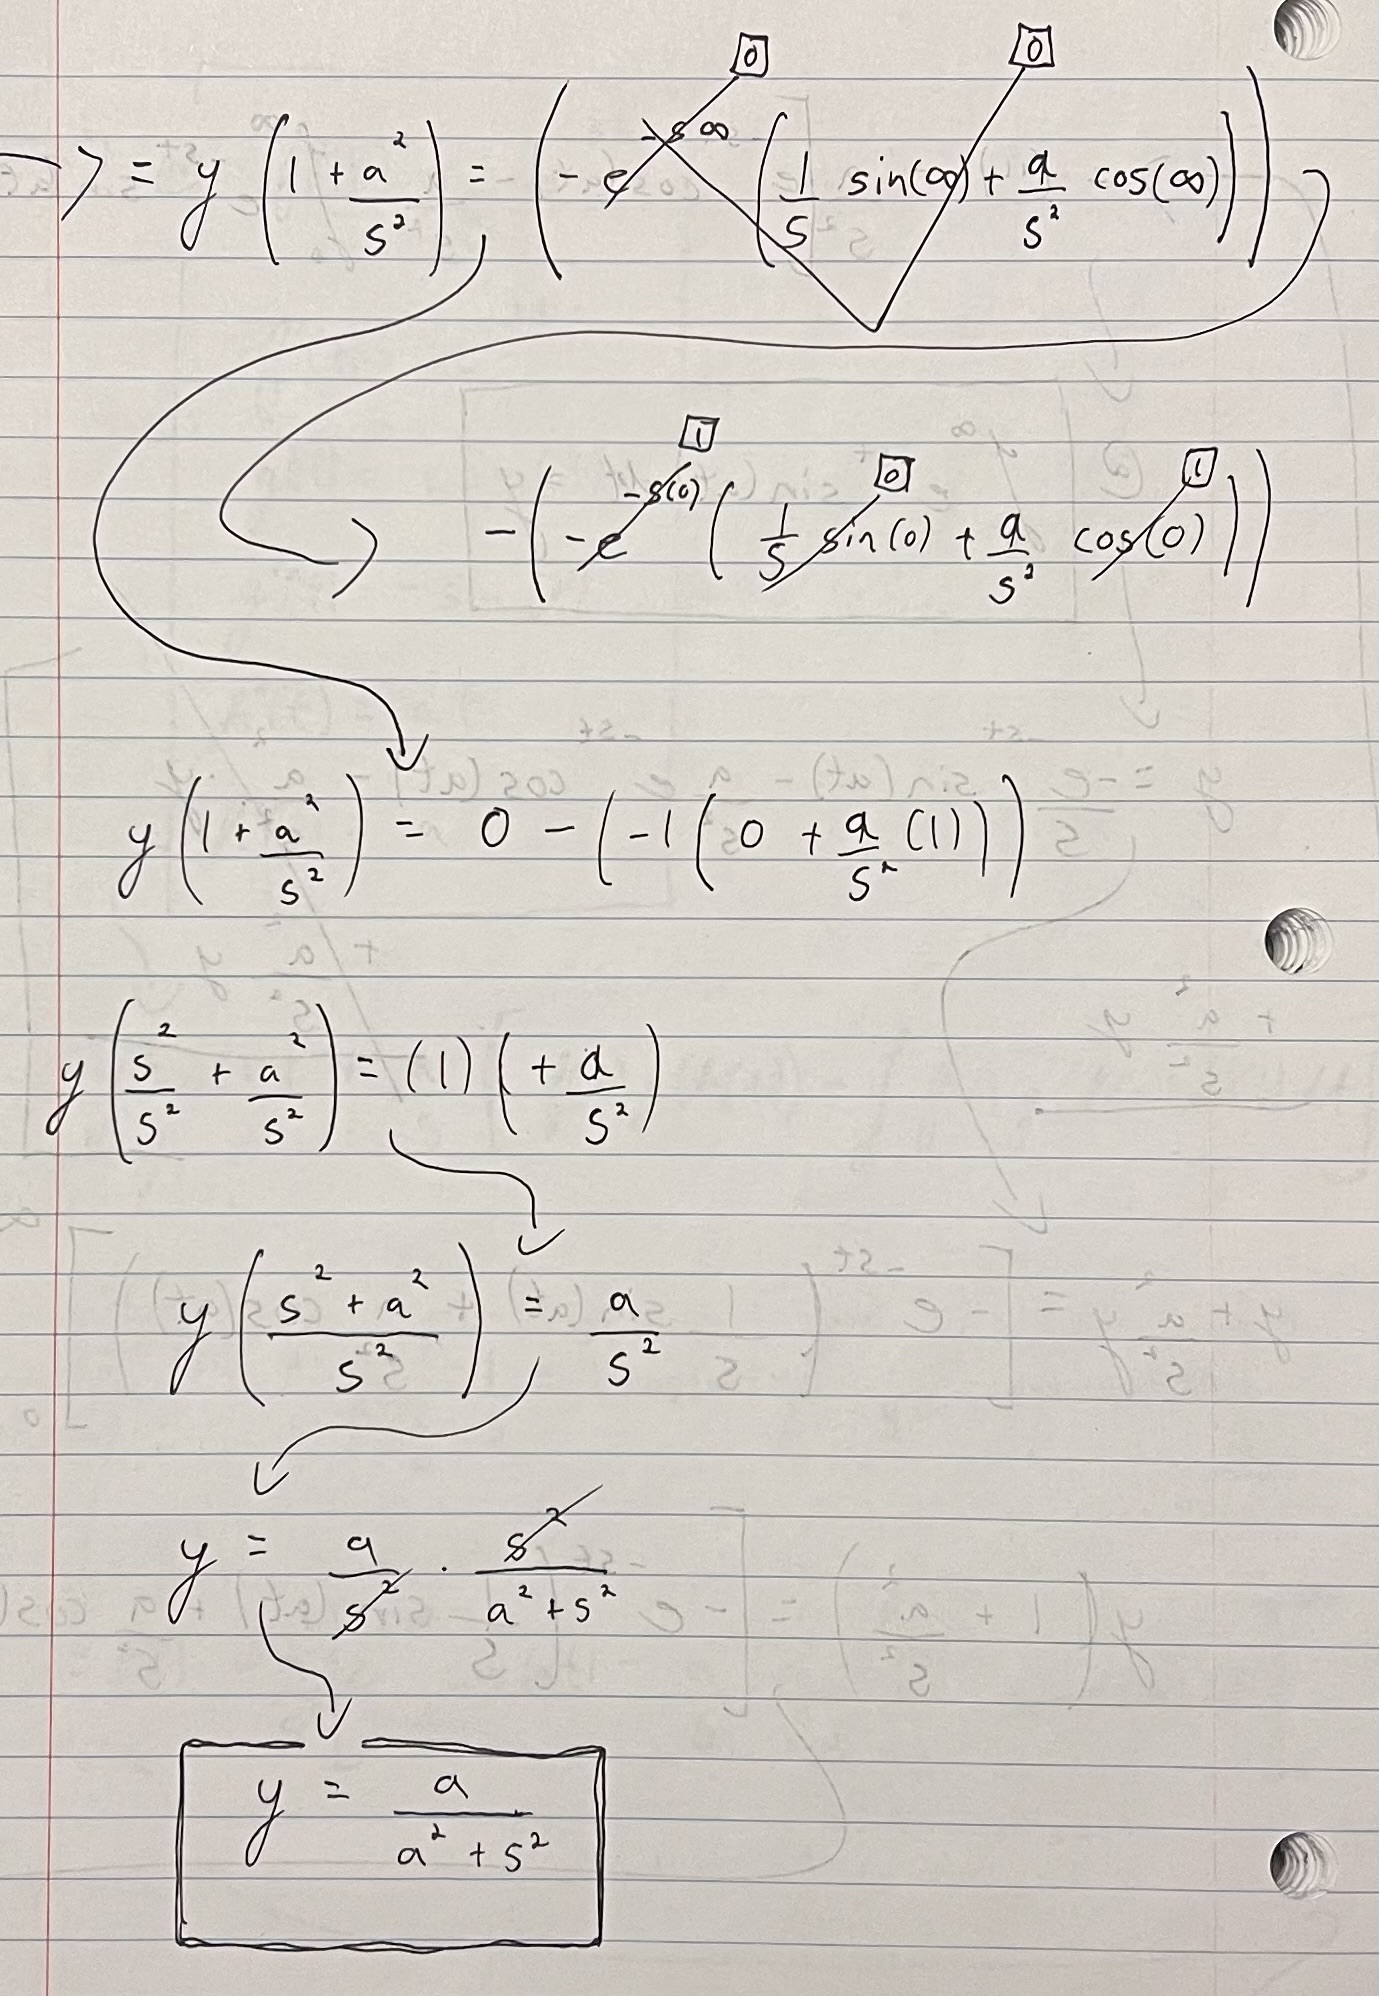 = y (1 + a²/s²) = (-e^(-s∞) (1/s sin(∞) + a/s² cos(∞)))
0 0
-(-e^(-s(0)) (1/s sin(0) + a/s² cos(0)))
1 0 1
y (1 + a²/s²) = 0 - (-1 (0 + a/s² (1)))
y (s²/s² + a²/s²) = (1) (+ a/s²)
y ((s² + a²)/s²) = a/s²
y = a/s² · s²/(a² + s²)
y = a/(a² + s²)